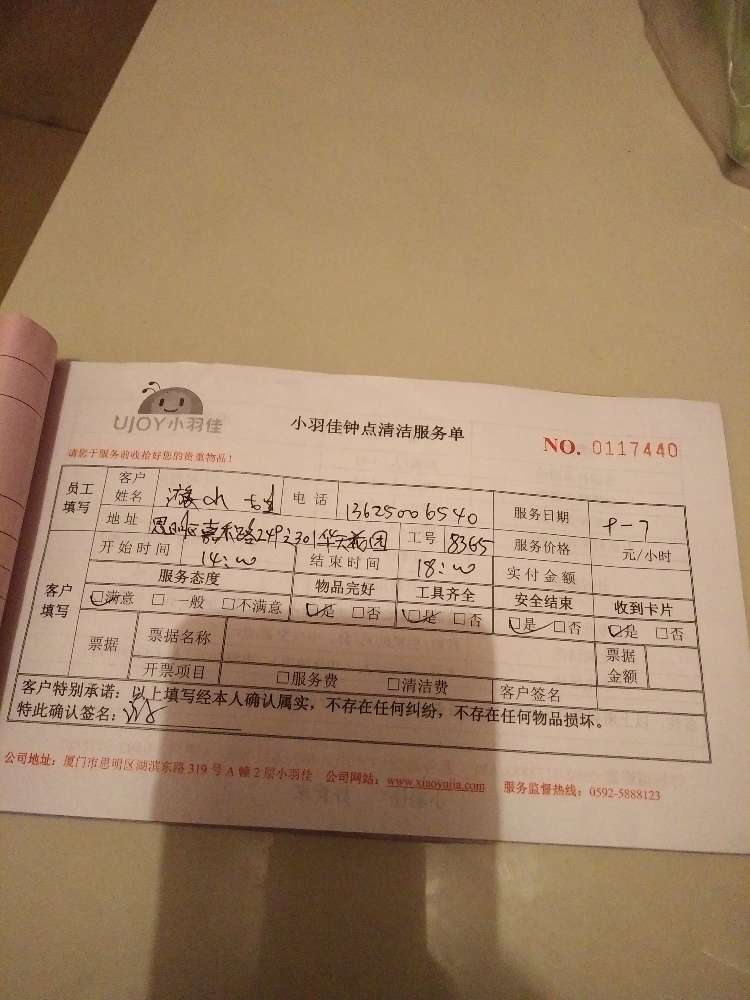 UJOY小羽佳
小羽佳钟点清洁服务单
NO. 0117440
请您于服务前收拾好您的贵重物品!
员工填写 客户姓名 电话 13625006540 服务日期
地址 思明区嘉禾路249之301华天花园 工号 8365 服务价格 元/小时
客户填写 开始时间 14:00 结束时间 18:00 实付金额
服务态度 物品完好 工具齐全 安全结束 收到卡片
☑满意 □一般 □不满意 ☑是 □否 ☑是 □否 ☑是 □否 ☑是 □否
票据 票据名称 票据金额
开票项目 □服务费 □清洁费 客户签名
客户特别承诺:以上填写经本人确认属实,不存在任何纠纷,不存在任何物品损坏。
特此确认签名:
公司地址:厦门市思明区湖滨东路319号A幢2层小羽佳 公司网站:www.xiaoyujia.com 服务监督热线:0592-5888123